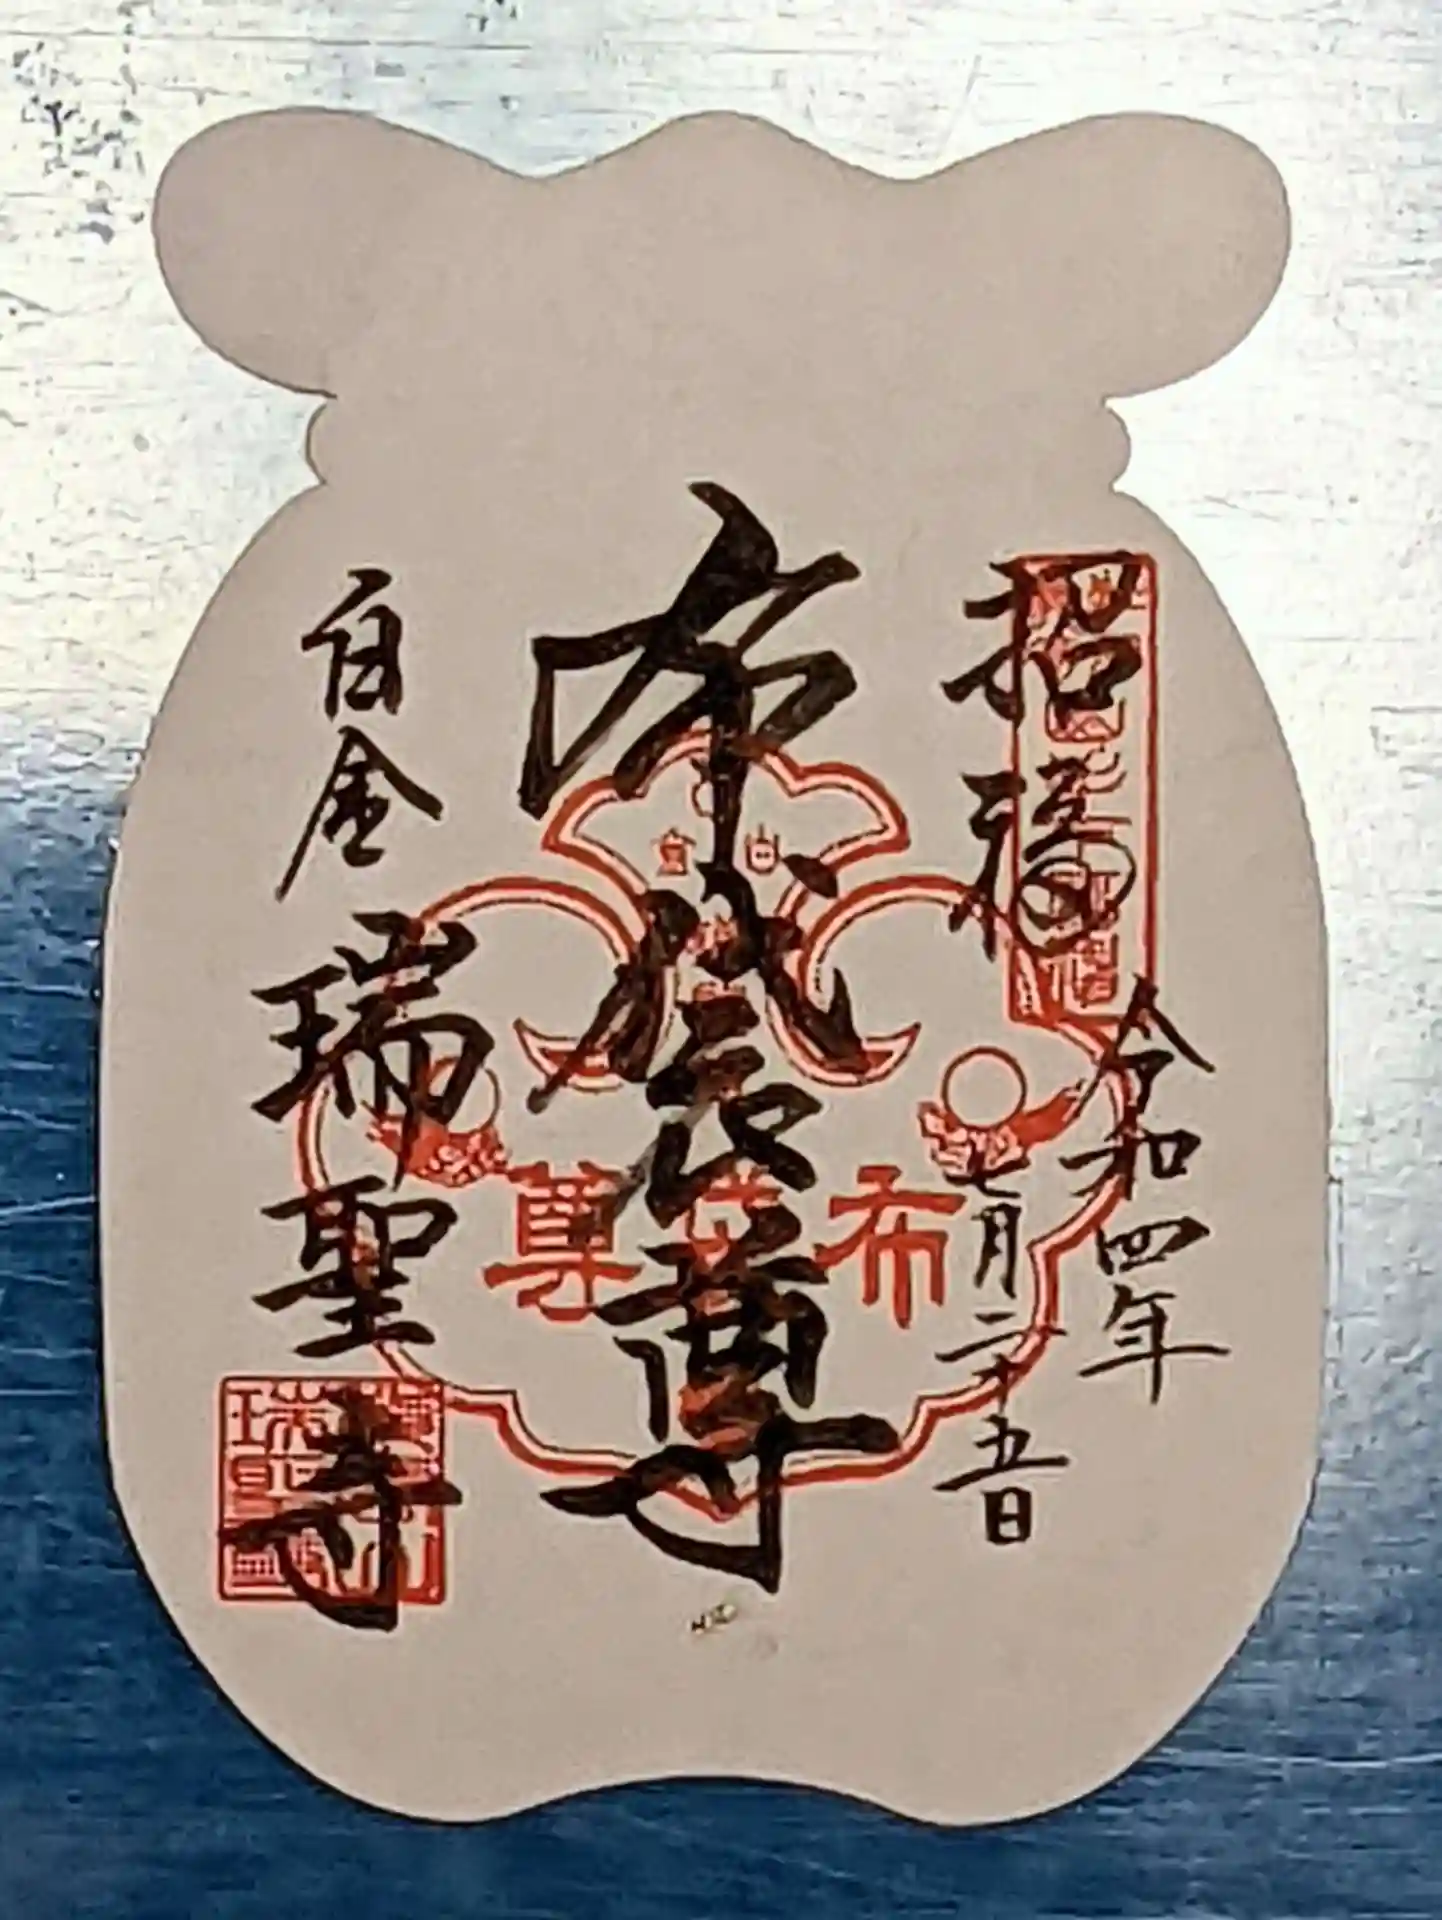 招福
令和四年
七月二十五日
布袋尊
白金
瑞聖寺
布袋尊